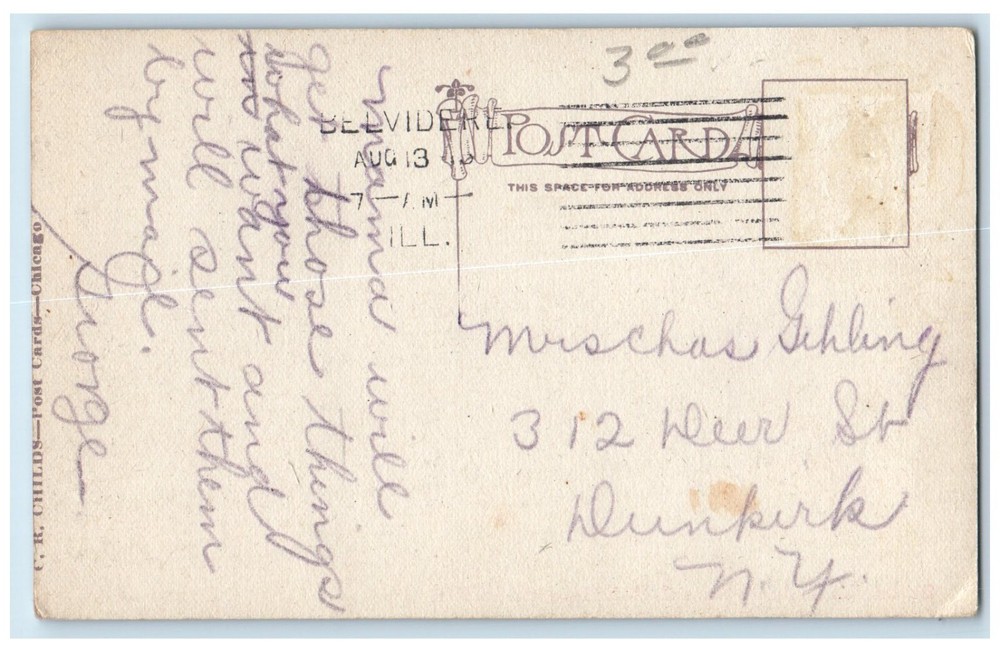 3 00
BELVIDERE
AUG 13
7-AM
ILL.
POST CARD
THIS SPACE FOR ADDRESS ONLY
Mama will
get those things
what you
want and
will sent them
by mail.
George
Mrs Chas Gehling
312 Deer St
Dunkirk
N.Y.
C. R. CHILDS—Post Cards—Chicago